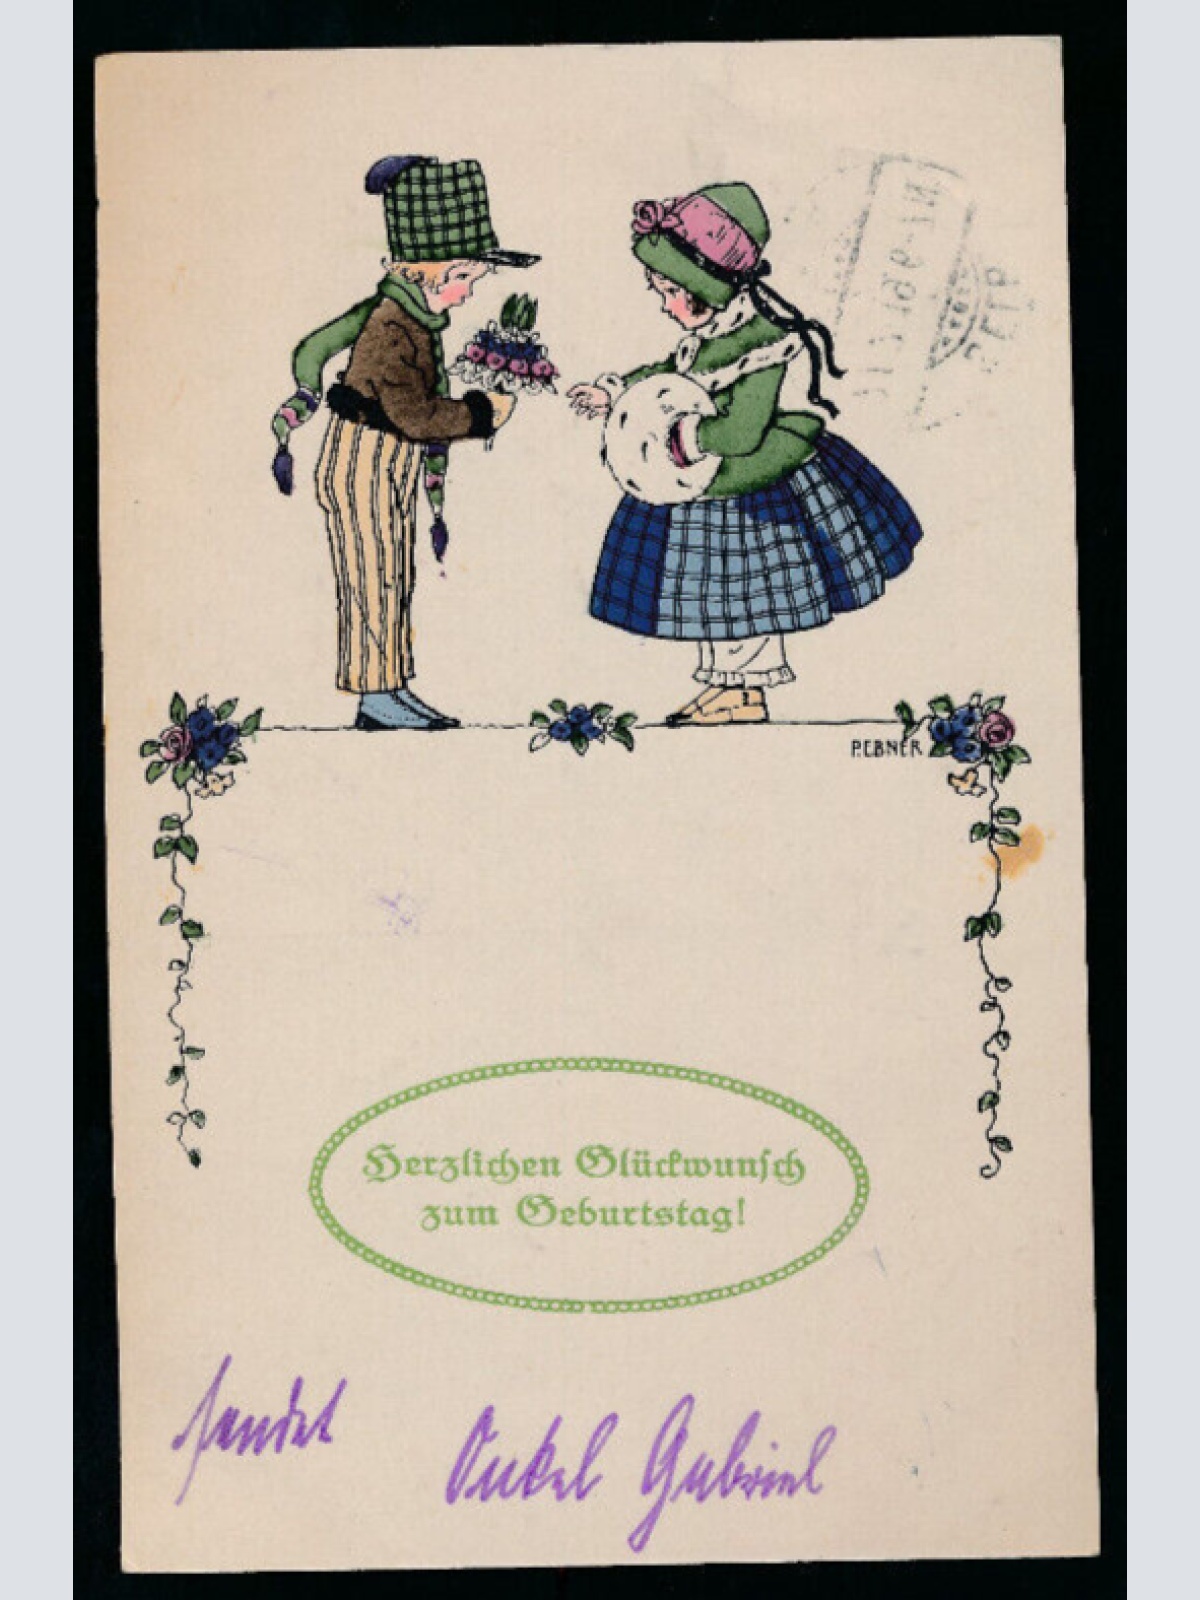 P.EBNER
Herzlichen Glückwunsch
zum Geburtstag!
sendet
Onkel Gabriel